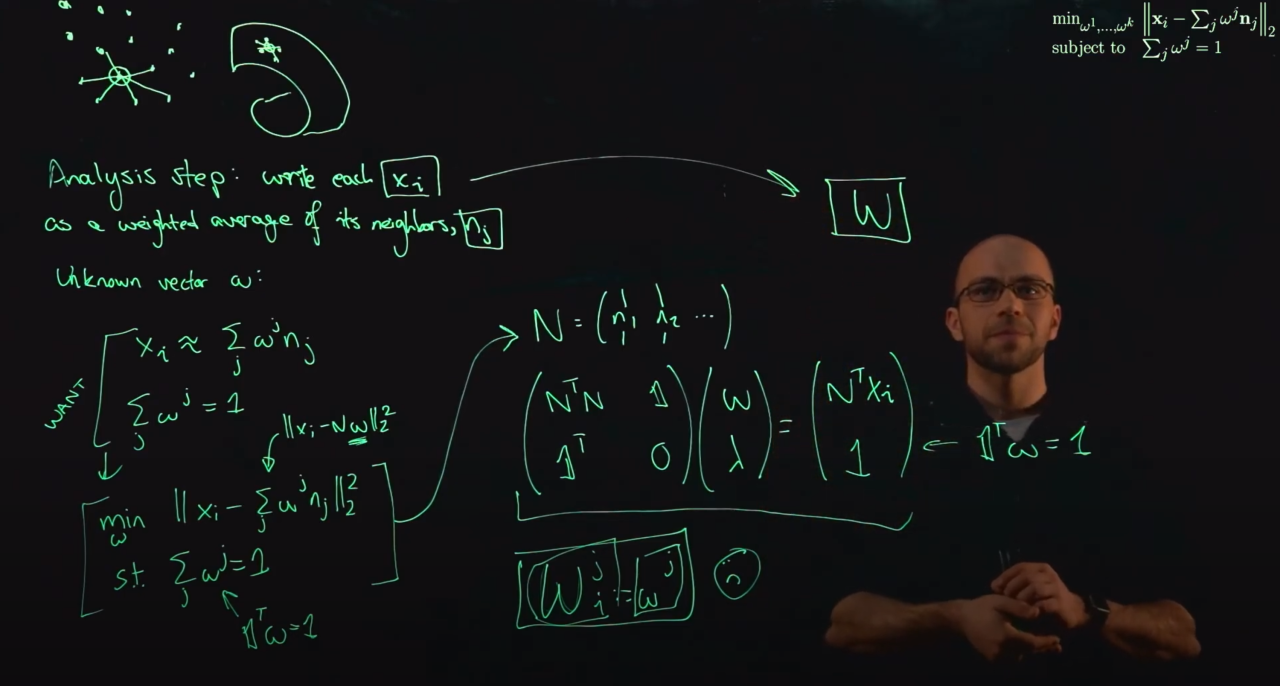 min_{ω^1,...,ω^k} ‖x_i − ∑_j ω^j n_j‖_2
subject to ∑_j ω^j = 1
Analysis step: write each x_i
as a weighted average of its neighbors, n_j
W
Unknown vector ω:
WANT
x_i ≈ ∑_j ω^j n_j
∑_j ω^j = 1
‖x_i − Nω‖_2^2
min_ω ‖x_i − ∑_j ω^j n_j‖_2^2
s.t. ∑_j ω^j = 1
𝟙^T ω = 1
N = (n_1 n_2 ...)
(N^T N 𝟙) (ω) = (N^T x_i)
(𝟙^T 0) (λ) (1) ← 𝟙^T ω = 1
W_i^j := ω^j